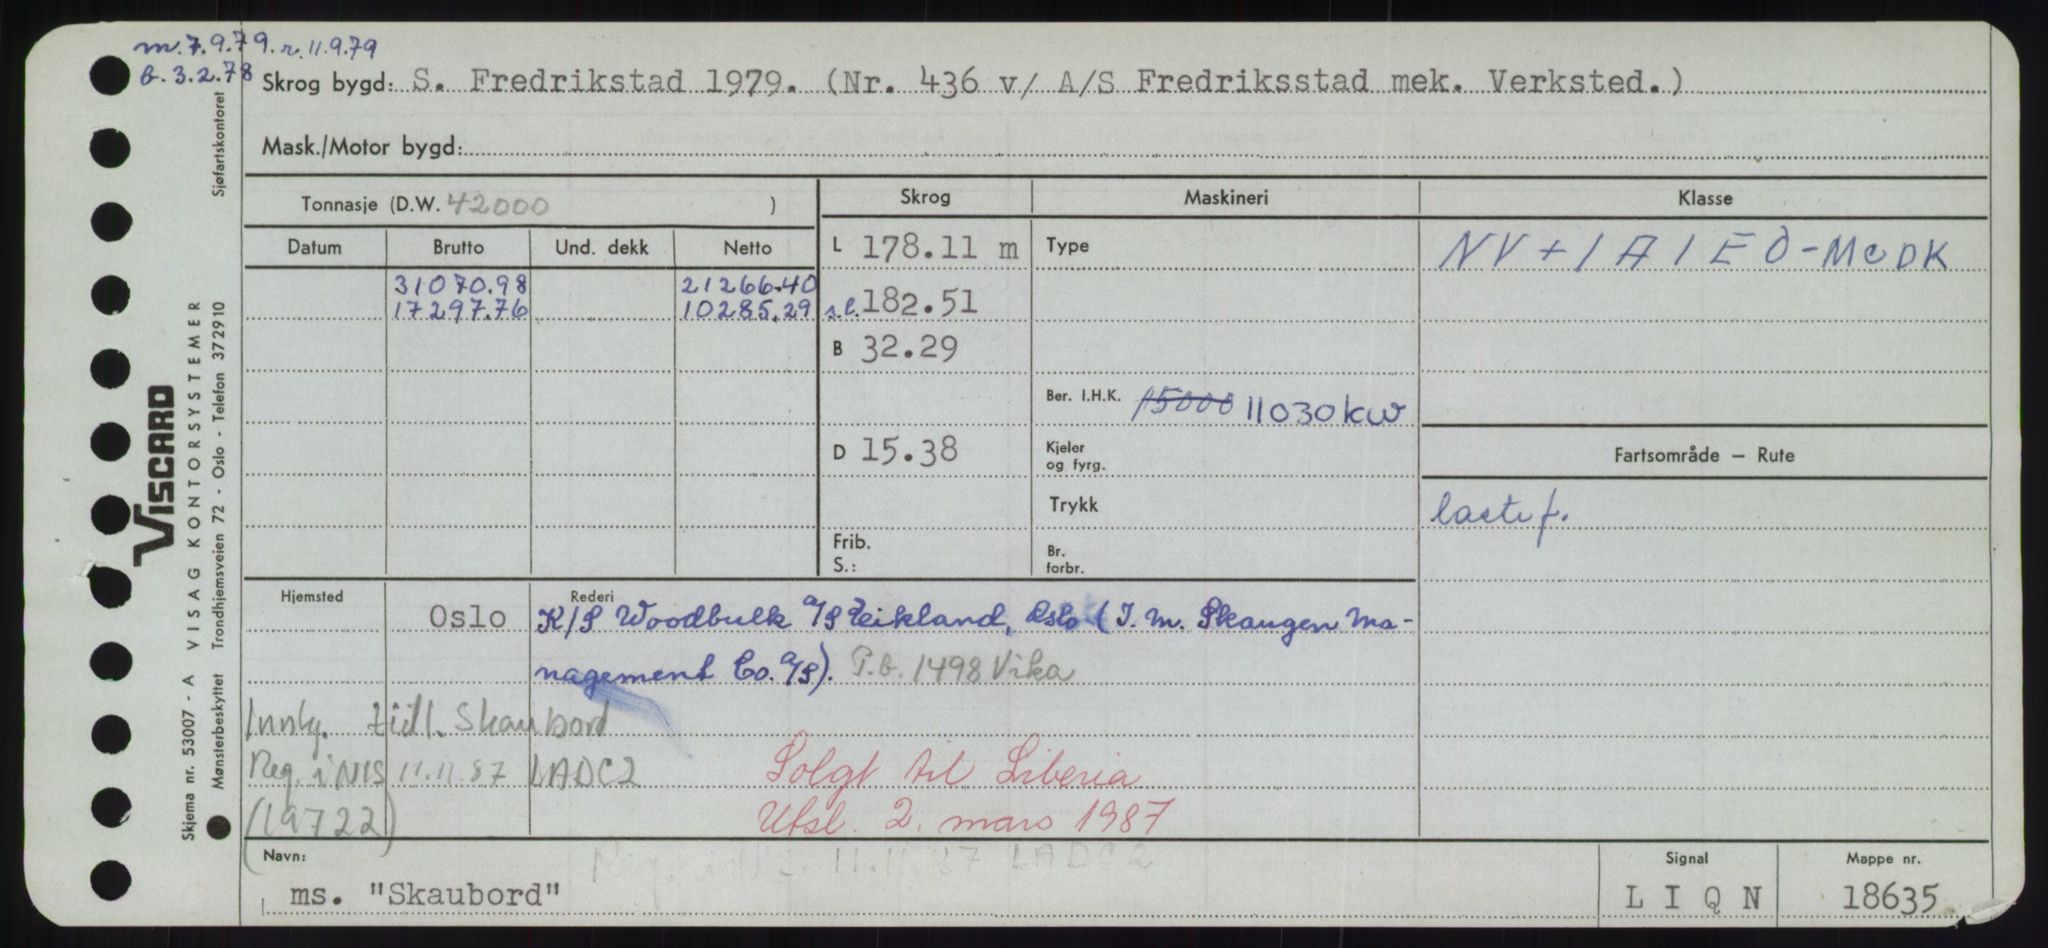 m. 7.9.79. r. 11.9.79
b. 3.2.78
Skrog bygd: S. Fredrikstad 1979. (Nr. 436 v/ A/S Fredriksstad mek. Verksted.)
Mask./Motor bygd:
Tonnasje (D.W. 42000 )
Skrog Maskineri Klasse
Datum Brutto Und. dekk Netto
L 178.11 m Type NV + 1 A 1 E O - MCDK
31070.98 21266.40
17297.76 10285.29 s.l. 182.51
B 32.29
Ber. I.H.K. 15000 11030 kW
D 15.38 Kjeler
og fyrg.
Fartsområde — Rute
Trykk lastef.
Frib.
S.:
Br.
forbr.
Hjemsted Rederi
Oslo K/S Woodbulk A/S Eikland, Oslo (I. M. Skaugen Ma-
nagement Co. A/S). P.b. 1498 Vika
Innkj. tidl. Skaubord
Reg. i NIS 11.11.87 LADC2 Solgt til Liberia
(19722) Utsl. 2. mars 1987
Reg. i NIS. 11.11.87 LADC2
Navn: Signal Mappe nr.
ms. "Skaubord" L I Q N 18635
VISCARD
Skjema nr. 53007 - A VISAG KONTORSYSTEMER
Mønsterbeskyttet Trondhjemsveien 72 - Oslo - Telefon 372910 Sjøfartskontoret